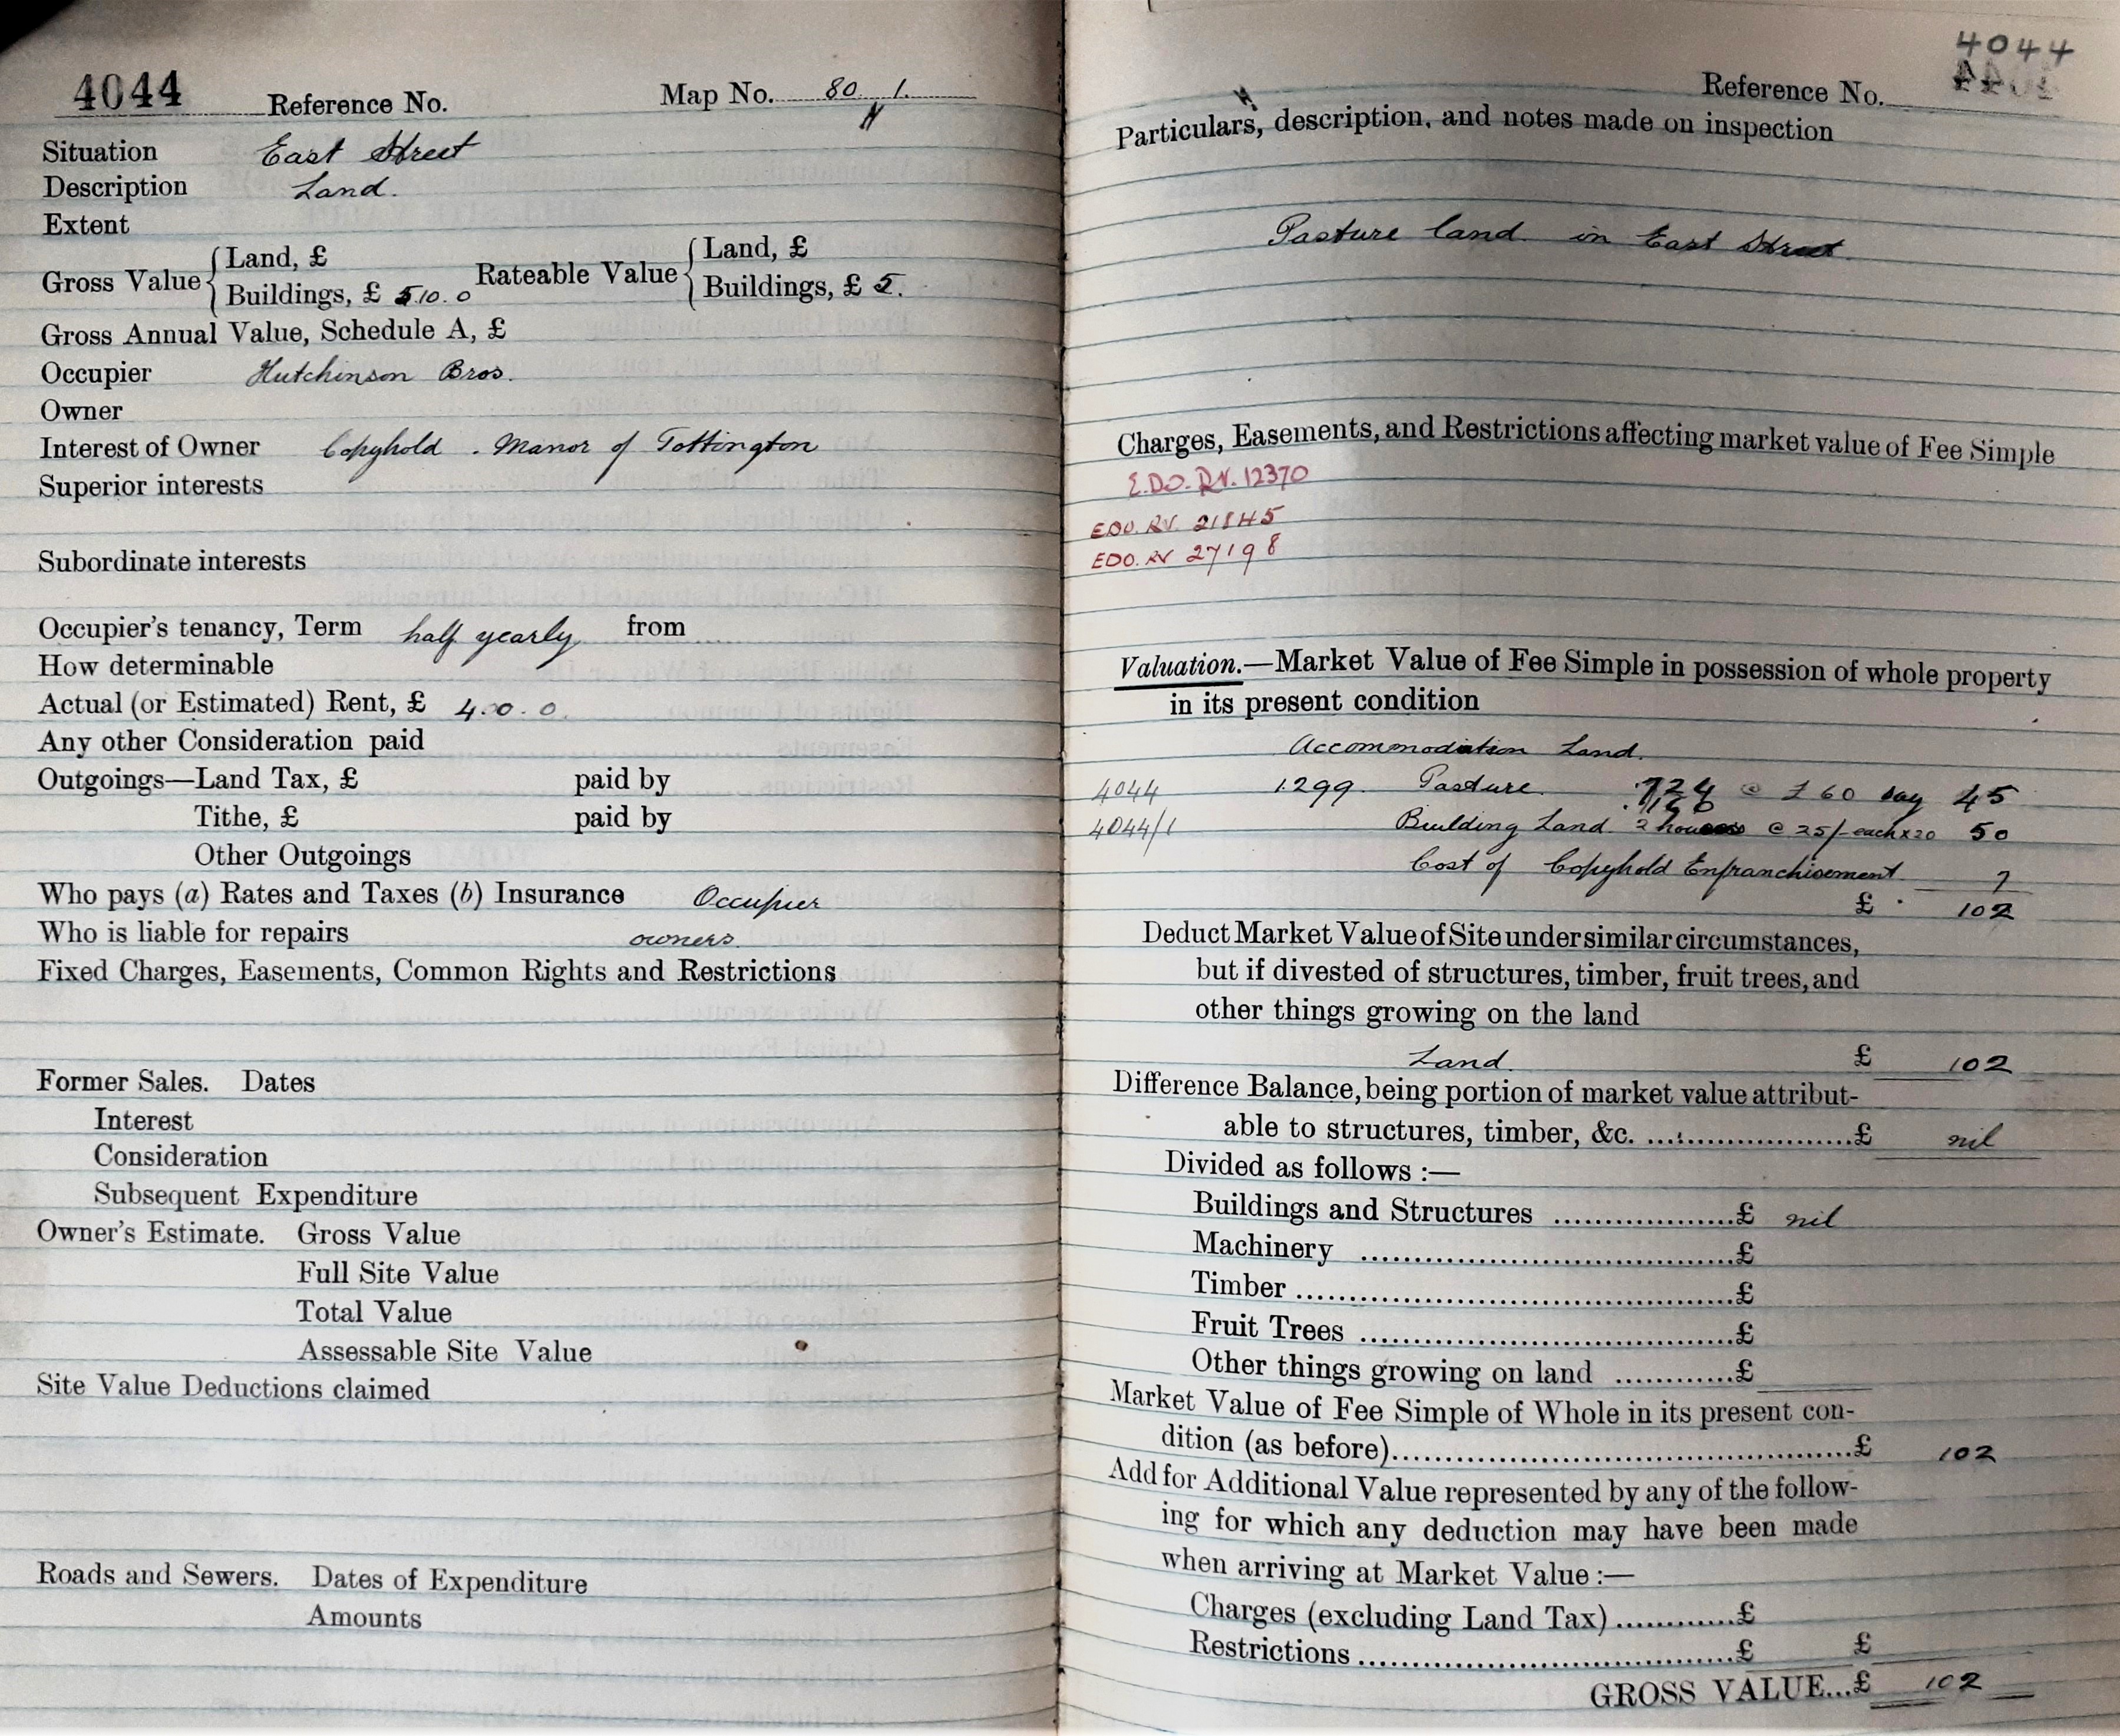 4044 Reference No. Map No. 80 1.
Situation East Street
Description Land.
Extent
Gross Value { Land, £ Rateable Value { Land, £
Buildings, £ 5.10.0 Buildings, £ 5.
Gross Annual Value, Schedule A, £
Occupier Hutchinson Bros.
Owner
Interest of Owner Copyhold . Manor of Tottington
Superior interests
Subordinate interests
Occupier's tenancy, Term half yearly from
How determinable
Actual (or Estimated) Rent, £ 4.0.0.
Any other Consideration paid
Outgoings—Land Tax, £ paid by
Tithe, £ paid by
Other Outgoings
Who pays (a) Rates and Taxes (b) Insurance Occupier
Who is liable for repairs owners.
Fixed Charges, Easements, Common Rights and Restrictions
Former Sales. Dates
Interest
Consideration
Subsequent Expenditure
Owner's Estimate. Gross Value
Full Site Value
Total Value
Assessable Site Value
Site Value Deductions claimed
Roads and Sewers. Dates of Expenditure
Amounts
4044
Reference No. 4044
Particulars, description, and notes made on inspection
Pasture land in East Street.
Charges, Easements, and Restrictions affecting market value of Fee Simple
E.D.O. RV. 12370
EDO. RV. 21845
EDO. RV 27198
Valuation.—Market Value of Fee Simple in possession of whole property
in its present condition
Accommodation Land.
4044 1299. Pasture .724 @ £60 say 45
4044/1 Building Land 2 houses @ 25/- each x 20 50
Cost of Copyhold Enfranchisement 7
£ 102
Deduct Market Value of Site under similar circumstances,
but if divested of structures, timber, fruit trees, and
other things growing on the land
Land. £ 102
Difference Balance, being portion of market value attribut-
able to structures, timber, &c. ......................£ nil
Divided as follows :—
Buildings and Structures ....................£ nil
Machinery ..........................................£
Timber ................................................£
Fruit Trees .........................................£
Other things growing on land ............£
Market Value of Fee Simple of Whole in its present con-
dition (as before)..................................................£ 102
Add for Additional Value represented by any of the follow-
ing for which any deduction may have been made
when arriving at Market Value :—
Charges (excluding Land Tax) ............£
Restrictions .........................................£ £
GROSS VALUE...£ 102